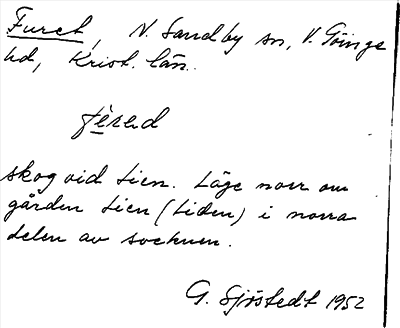 Furet, N. Sandby sn, V. Göinge
hd, Krist. län.
skog vid Lien. Läge norr om
gården Lien (Liden) i norra
delen av socknen.
G. Sjöstedt 1952